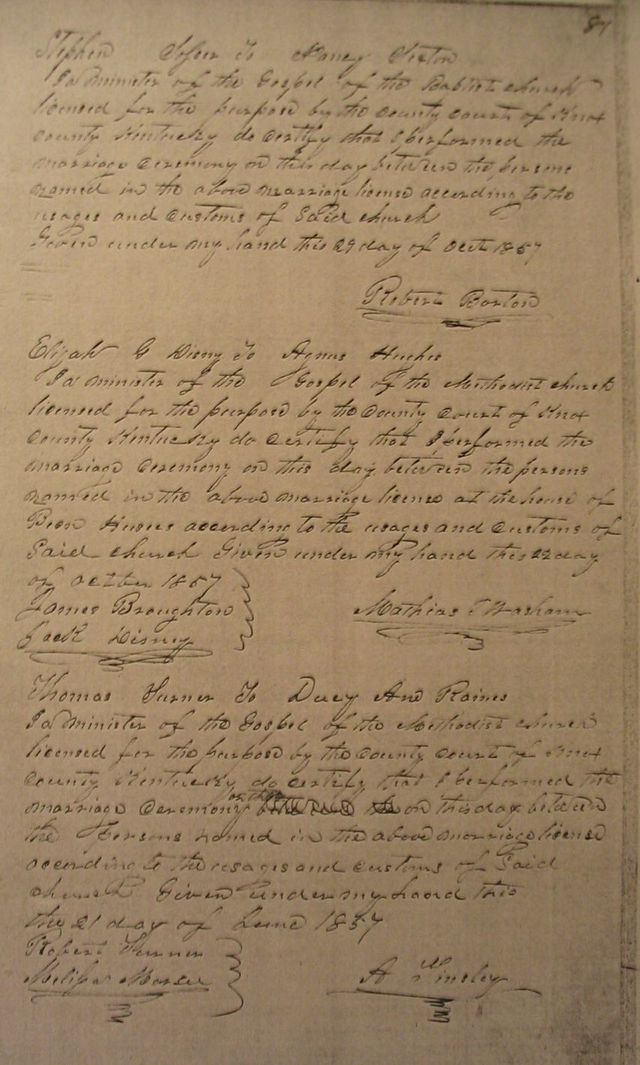 87
Stephen to Nancy Sexton
I a minister of the Gospel of the Baptist church
licensed for the purpose by the county court of Knox
county Kentucky do certify that I performed the
marriage ceremony on this day between the persons
named in the above marriage license according to the
usages and customs of Said church
Given under my hand this 29 day of Oct 1857
Robert Barton
Elijah G Disny To Agnus Hughes
I a minister of the Gospel of the Methodist church
licensed for the purpose by the County Court of Knox
County Kentucky do certify that I performed the
marriage ceremony on this day between the persons
named in the above marriage license at the house of
according to the usages and customs of
Said church Given under my hand this 22 day
of octber 1857
James Broughton
Jack Disney
Mathias Washam
Thomas Turner To Ann Raines
I a minister of the Gospel of the Methodist church
licensed for the purpose by the county court of Knox
County Kentucky do certify that I performed the
marriage ceremony on this day between
the Persons named in the above marriage license
according to the usages and customs of Said
church Given under my hand this
the 21 day of June 1857
Robert Turner
A Tinsley